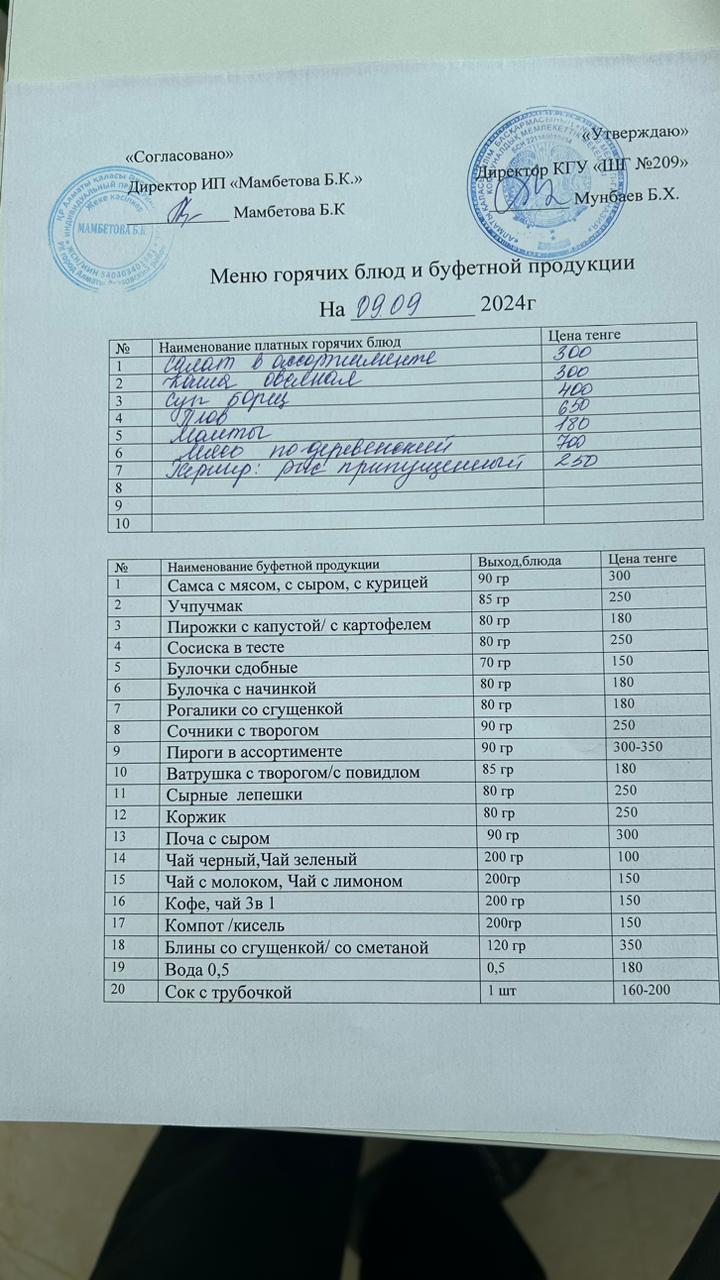 «Согласовано»
«Утверждаю»
Директор ИП «Мамбетова Б.К.»
Директор КГУ «ШГ №209»
Мамбетова Б.К
Мунбаев Б.Х.
МАМБЕТОВА Б.К
Меню горячих блюд и буфетной продукции
На 09.09 2024г
№ Наименование платных горячих блюд Цена тенге
1 Салат в ассортименте 300
2 Каша овсяная 300
3 Суп борщ 400
4 Плов 650
5 Манты 180
6 Мясо по деревенский 700
7 Гарнир: рис припущенный 250
8
9
10
№ Наименование буфетной продукции Выход,блюда Цена тенге
1 Самса с мясом, с сыром, с курицей 90 гр 300
2 Учпучмак 85 гр 250
3 Пирожки с капустой/ с картофелем 80 гр 180
4 Сосиска в тесте 80 гр 250
5 Булочки сдобные 70 гр 150
6 Булочка с начинкой 80 гр 180
7 Рогалики со сгущенкой 80 гр 180
8 Сочники с творогом 90 гр 250
9 Пироги в ассортименте 90 гр 300-350
10 Ватрушка с творогом/с повидлом 85 гр 180
11 Сырные лепешки 80 гр 250
12 Коржик 80 гр 250
13 Поча с сыром 90 гр 300
14 Чай черный,Чай зеленый 200 гр 100
15 Чай с молоком, Чай с лимоном 200гр 150
16 Кофе, чай 3в 1 200 гр 150
17 Компот /кисель 200гр 150
18 Блины со сгущенкой/ со сметаной 120 гр 350
19 Вода 0,5 0,5 180
20 Сок с трубочкой 1 шт 160-200